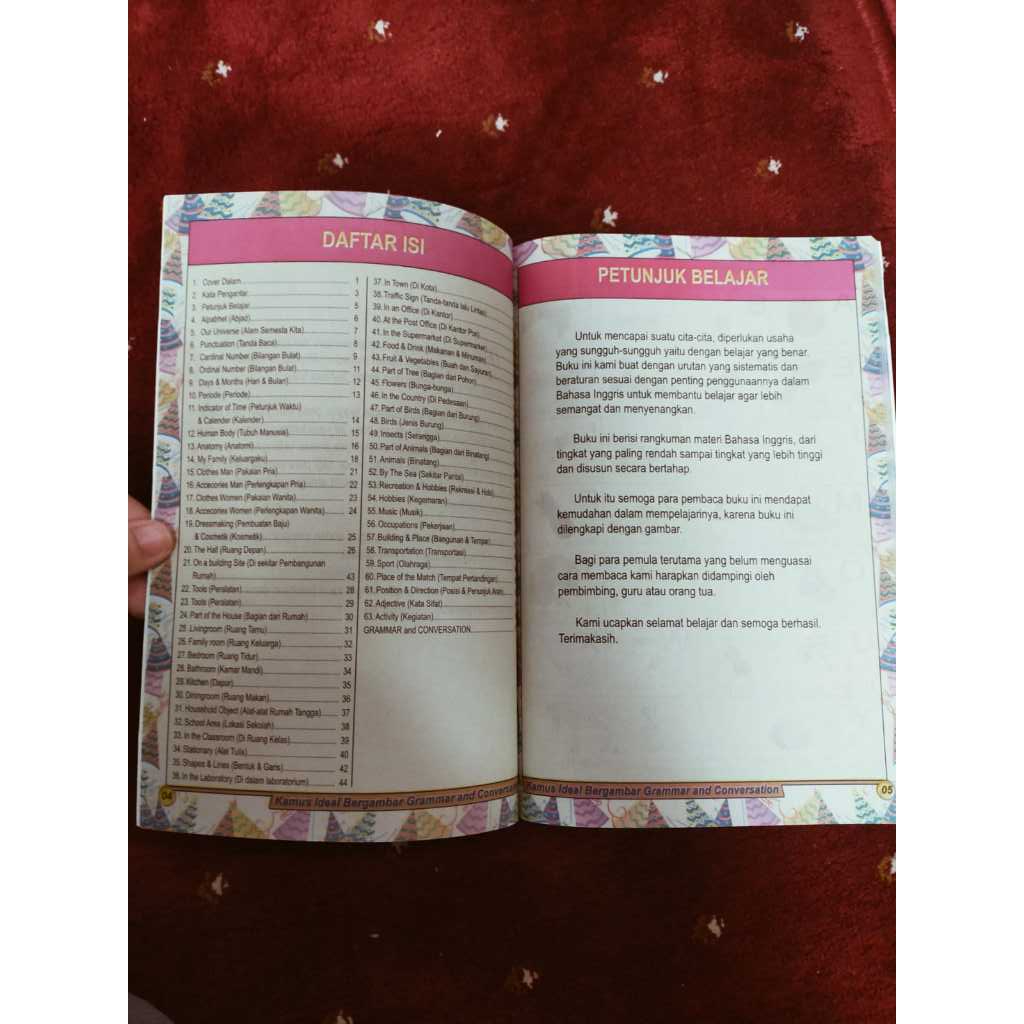 DAFTAR ISI
1. Cover Dalam 1
2. Kata Pengantar 3
3. Petunjuk Belajar 5
4. Alpabhet (Abjad) 6
5. Our Universe (Alam Semesta Kita) 7
6. Punctuation (Tanda Baca) 8
7. Cardinal Number (Bilangan Bulat) 9
8. Ordinal Number (Bilangan Bulat) 11
9. Days & Months (Hari & Bulan) 12
10. Periode (Periode) 13
11. Indicator of Time (Petunjuk Waktu)
& Calender (Kalender) 14
12. Human Body (Tubuh Manusia) 15
13. Anatomy (Anatomi) 16
14. My Family (Keluargaku) 18
15. Clothes Man (Pakaian Pria) 21
16. Accecories Man (Perlengkapan Pria) 22
17. Clothes Women (Pakaian Wanita) 23
18. Accecories Women (Perlengkapan Wanita) 24
19. Dressmaking (Pembuatan Baju)
& Cosmetik (Kosmetik) 25
20. The Hall (Ruang Depan) 26
21. On a building Site (Di sekitar Pembangunan
Rumah) 43
22. Tools (Peralatan) 28
23. Tools (Peralatan) 29
24. Part of the House (Bagian dari Rumah) 30
25. Livingroom (Ruang Tamu) 31
26. Family room (Ruang Keluarga) 32
27. Bedroom (Ruang Tidur) 33
28. Bathroom (Kamar Mandi) 34
29. Kitchen (Dapur) 35
30. Diningroom (Ruang Makan) 36
31. Household Object (Alat-alat Rumah Tangga) 37
32. School Area (Lokasi Sekolah) 38
33. In the Classroom (Di Ruang Kelas) 39
34. Stationary (Alat Tulis) 40
35. Shapes & Lines (Bentuk & Garis) 42
36. In the Laboratory (Di dalam laboratorium) 44
37. In Town (Di Kota)
38. Traffic Sign (Tanda-tanda lalu Lintas)
39. In an Office (Di Kantor)
40. At the Post Office (Di Kantor Pos)
41. In the Supermarket (Di Supermarket)
42. Food & Drink (Makanan & Minuman)
43. Fruit & Vegetables (Buah dan Sayuran)
44. Part of Tree (Bagian dari Pohon)
45. Flowers (Bunga-bunga)
46. In the Country (Di Pedesaan)
47. Part of Birds (Bagian dari Burung)
48. Birds (Jenis Burung)
49. Insects (Serangga)
50. Part of Animals (Bagian dari Binatang)
51. Animals (Binatang)
52. By The Sea (Sekitar Pantai)
53. Recreation & Hobbies (Rekreasi & Hobi)
54. Hobbies (Kegemaran)
55. Music (Musik)
56. Occupations (Pekerjaan)
57. Building & Place (Bangunan & Tempat)
58. Transportation (Transportasi)
59. Sport (Olahraga)
60. Place of the Match (Tempat Pertandingan)
61. Position & Direction (Posisi & Penunjuk Arah)
62. Adjective (Kata Sifat)
63. Activity (Kegiatan)
GRAMMAR and CONVERSATION
04
Kamus Ideal Bergambar Grammar and
PETUNJUK BELAJAR
Untuk mencapai suatu cita-cita, diperlukan usaha
yang sungguh-sungguh yaitu dengan belajar yang benar.
Buku ini kami buat dengan urutan yang sistematis dan
beraturan sesuai dengan penting penggunaannya dalam
Bahasa Inggris untuk membantu belajar agar lebih
semangat dan menyenangkan.
Buku ini berisi rangkuman materi Bahasa Inggris, dari
tingkat yang paling rendah sampai tingkat yang lebih tinggi
dan disusun secara bertahap.
Untuk itu semoga para pembaca buku ini mendapat
kemudahan dalam mempelajarinya, karena buku ini
dilengkapi dengan gambar.
Bagi para pemula terutama yang belum menguasai
cara membaca kami harapkan didampingi oleh
pembimbing, guru atau orang tua.
Kami ucapkan selamat belajar dan semoga berhasil.
Terimakasih.
Kamus Ideal Bergambar Grammar and Conversation
05